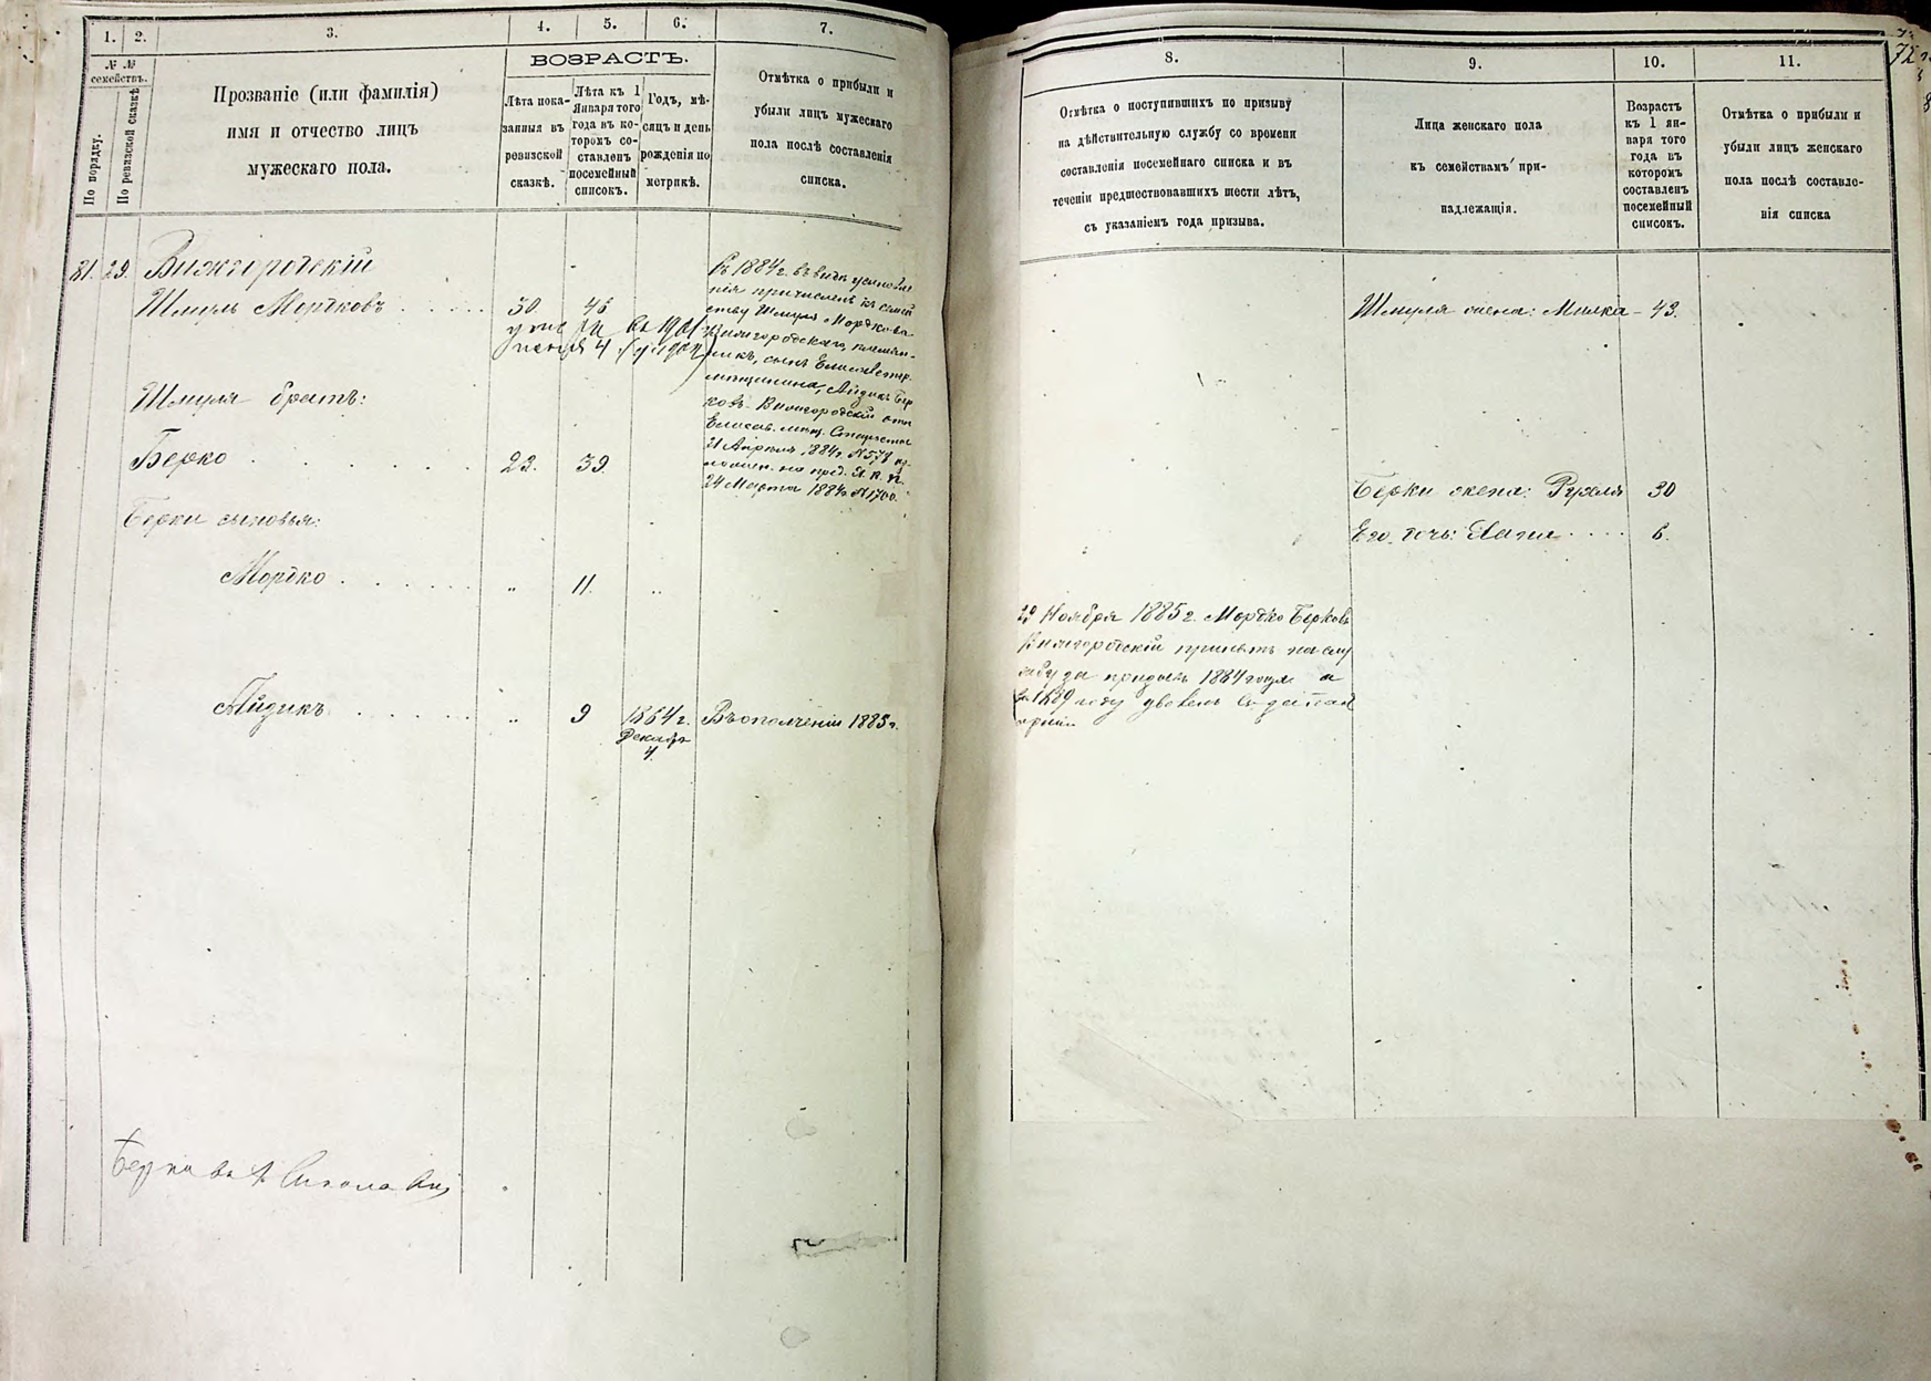 1. 2. 3. 4. 5. 6. 7.
№ №
семействъ.
По порядку.
По ревизской сказкѣ
Прозваніе (или фамилія)
имя и отчество лицъ
мужескаго пола.
ВОЗРАСТЪ.
Лѣта пока-
занныя въ
ревизской
сказкѣ.
Лѣта къ 1
Января того
года въ ко-
торомъ со-
ставленъ
посемейный
списокъ.
Годъ, мѣ-
сяцъ и день
рожденія по
метрикѣ.
Отмѣтка о прибыли и
убыли лицъ мужескаго
пола послѣ составленія
списка.
81. 29. Вижгородскій
Шмуль Мордковъ 30. 46
Шмуля братъ:
Берко 23. 39.
Берки сыновья:
Мордко „ 11. „
Айзикъ „ 9 1864 г.
Декабр
4
Въ 1884 г. въ видѣ усыновле
нія причисленъ къ семей
ству Шмуля Мордкова
Вижгородскаго, племян-
никъ, сынъ Елисаветгр.
мѣщанина, Айзикъ Бер
ковъ Вижгородскій отн
Елисав. мѣщ. Старосты
21 Апрѣля 1884 г. № 578
24 Марта 1884 г. № 1700.
Въ ополченіи 1885 г.
8. 9. 10. 11.
72
Отмѣтка о поступившихъ по призыву
на дѣйствительную службу со времени
составленія посемейнаго списка и въ
теченіи предшествовавшихъ шести лѣтъ,
съ указаніемъ года призыва.
Лица женскаго пола
къ семействамъ при-
надлежащія.
Возрастъ
къ 1 ян-
варя того
года въ
которомъ
составленъ
посемейный
списокъ.
Отмѣтка о прибыли и
убыли лицъ женскаго
пола послѣ составле-
нія списка
Шмуля жена: Милка – 43.
Берки жена: Рухля 30
Его дочь: 6.
Ноября 1885 г. Мордко Берковъ
Вижгородскій принятъ на слу
жбу за призывъ 1884 года и
въ 1889 году уволенъ въ запасъ
арміи